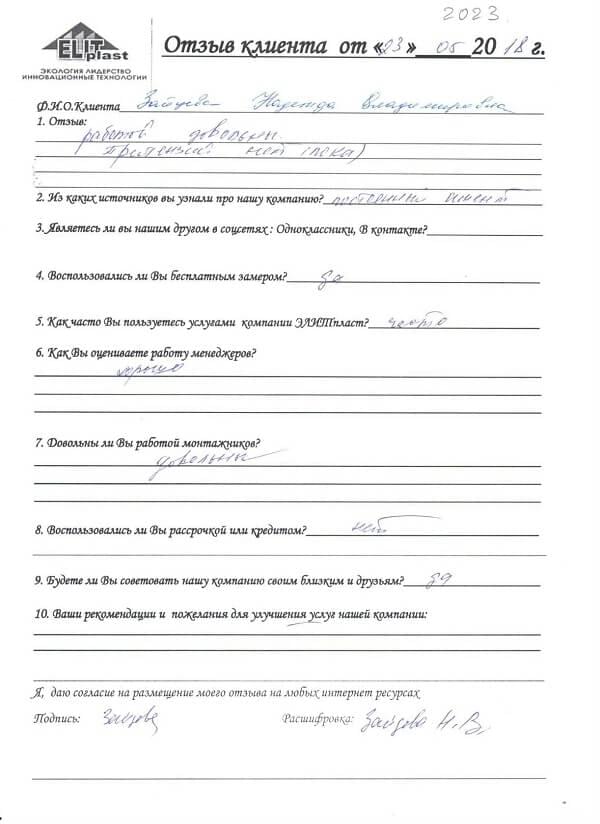 2023
ELIT
plast
ЭКОЛОГИЯ ЛИДЕРСТВО
ИННОВАЦИОННЫЕ ТЕХНОЛОГИИ
Отзыв клиента от «23» 05 2018 г.
Ф.И.О.Клиента Зайцева Надежда Владимировна
1. Отзыв:
работой довольны.
Претензий нет (пока)
2. Из каких источников вы узнали про нашу компанию? постоянный клиент
3. Являетесь ли вы нашим другом в соцсетях : Одноклассники, В контакте?
4. Воспользовались ли Вы бесплатным замером? да
5. Как часто Вы пользуетесь услугами компании ЭЛИТпласт? часто
6. Как Вы оцениваете работу менеджеров?
хорошо
7. Довольны ли Вы работой монтажников?
довольны
8. Воспользовались ли Вы рассрочкой или кредитом? нет
9. Будете ли Вы советовать нашу компанию своим близким и друзьям? да
10. Ваши рекомендации и пожелания для улучшения услуг нашей компании:
Я, даю согласие на размещение моего отзыва на любых интернет ресурсах
Подпись: Зайцева Расшифровка: Зайцева Н.В.